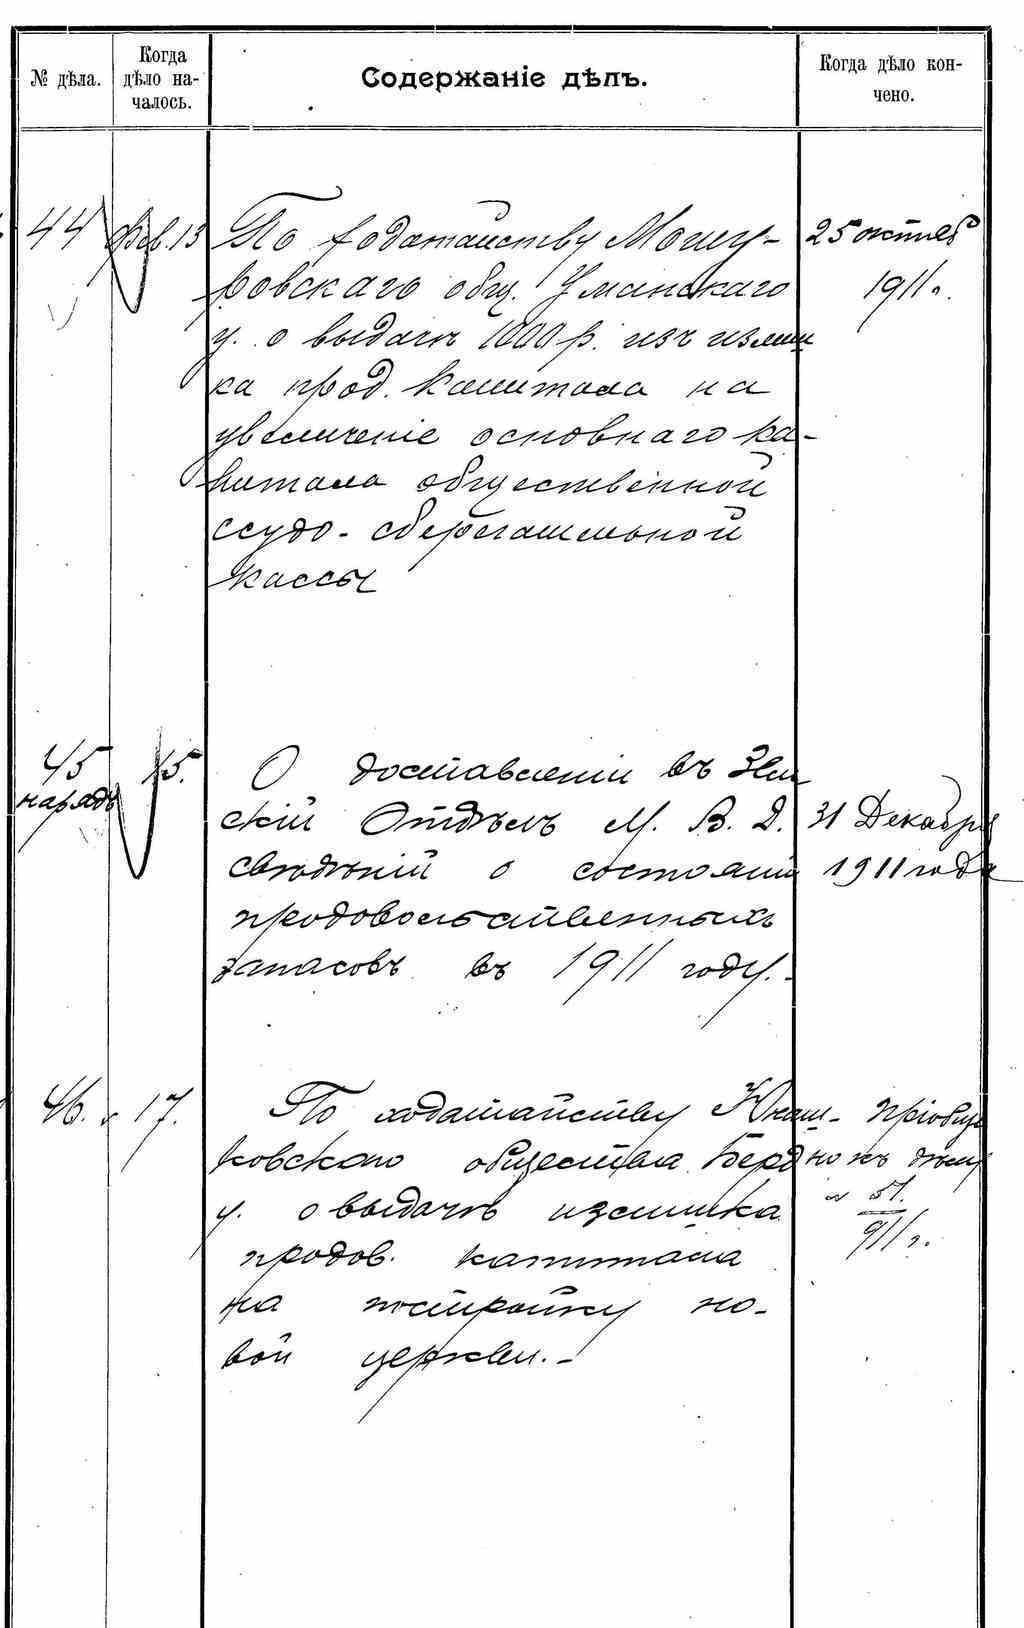 № дѣла.
Когда
дѣло на-
чалось.
Содержаніе дѣлъ.
Когда дѣло кон-
чено.
44
Фев. 13
По ходатайству
ровскаго общ. Уманскаго
у. о выдачѣ 1000 р. изъ излиш
ка прод. капитала на
увеличеніе основнаго ка-
питала общественной
ссудо-сберегательной
кассы
25 октяб
1911 г.
45
нарядъ
15.
О доставленіи въ Зем
скій Отдѣлъ М. В. Д.
свѣдѣній о состояніи
продовольственныхъ
запасовъ въ 1911 году.-
31 Декабря
1911 года
46.
17.
По ходатайству
ковскаго общества Берд
у. о выдачѣ излишка
продов. капитала
на постройку но-
вой церкви.-
Пріобще
но къ дѣлу
№ 51.
911 г.